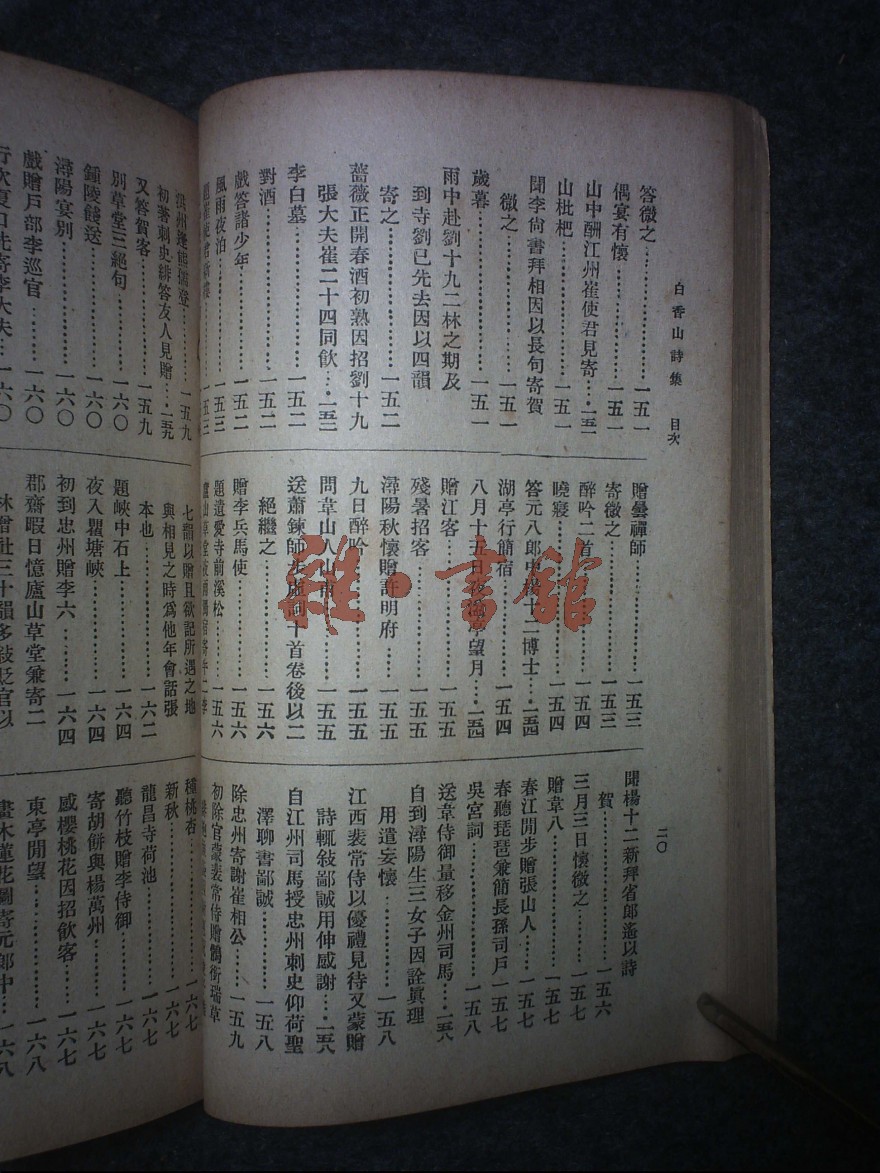 白香山詩集 目次
二〇
答微之……一五一
偶宴有懷……一五一
山中酬江州崔使君見寄…一五一
山枇杷……一五一
聞李尙書拜相因以長句寄賀
微之……一五一
歲暮……一五一
雨中赴劉十九二林之期及
到寺劉已先去因以四韻
寄之……一五二
薔薇正開春酒初熟因招劉十九
張大夫崔二十四同飮…一五二
李白墓……一五二
對酒……一五二
戲答諸少年……一五二
風雨夜泊……一五三
贈曇禪師……一五三
寄微之……一五三
醉吟二首……一五四
曉寢……一五四
答元八郎中楊十二博士…一五四
湖亭行簡宿……一五四
八月十五日夜 望月…一五四
贈江客……一五五
殘暑招客……一五五
潯陽秋懷贈許明府……一五五
九日醉吟……一五五
問韋山人山甫……一五五
送蕭鍊師步虛詞十首卷後以二
絕繼之……一五六
贈李兵馬使……一五六
題遺愛寺前溪松……一五六
聞楊十二新拜省郎遙以詩
賀……一五六
三月三日懷微之……一五七
贈韋八……一五七
春江閒步贈張山人……一五七
春聽琵琶兼簡長孫司戶…一五七
吳宮詞……一五八
送韋侍御量移金州司馬…一五八
自到潯陽生三女子因詮眞理
用遣妄懷……一五八
江西裴常侍以優禮見待又蒙贈
詩輒敍鄙誠用伸感謝…一五八
自江州司馬授忠州刺史仰荷聖
澤聊書鄙誠……一五八
除忠州寄謝崔相公……一五九
初除官蒙裴常侍贈鶻銜瑞草
初著刺史緋答友人見贈…一五九
又答賀客……一五九
別草堂三絕句……一六〇
鍾陵餞送……一六〇
潯陽宴別……一六〇
戲贈戶部李巡官……一六〇
行次夏口先寄李大夫…一六〇
七韻以贈且欲記所遇之地
與相見之時爲他年會話張
本也……一六二
題峽中石上……一六四
夜入瞿塘峽……一六四
初到忠州贈李六……一六四
郡齋暇日憶廬山草堂兼寄二
林僧社三十韻多敍貶官以
種桃杏……一六七
新秋……一六七
龍昌寺荷池……一六七
聽竹枝贈李侍御……一六七
寄胡餠與楊萬州……一六七
感櫻桃花因招飮客……一六七
東亭閒望……一六八
畫木蓮花圖寄元郎中…一六八
雜·书馆